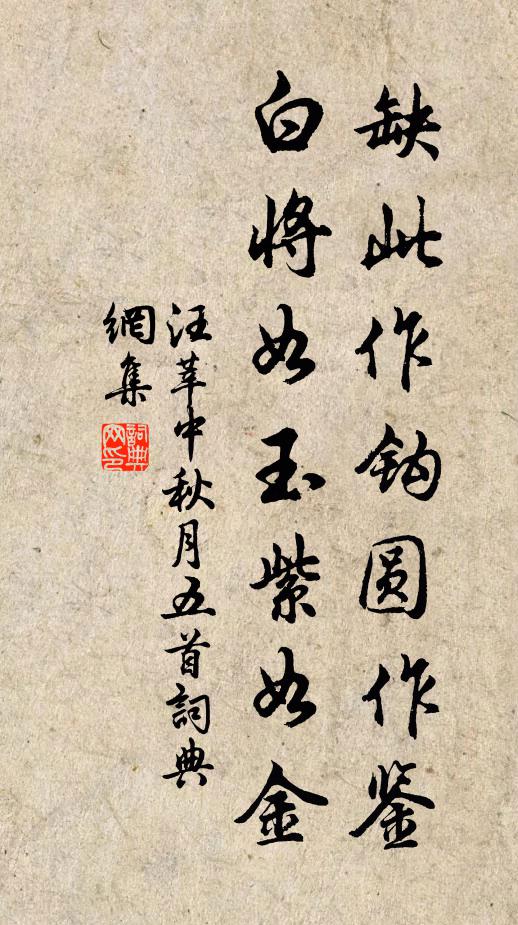 缺此作钩圆作鉴
白将如玉紫如金
汪莘中秋月五首詞典
網集
詞典网印